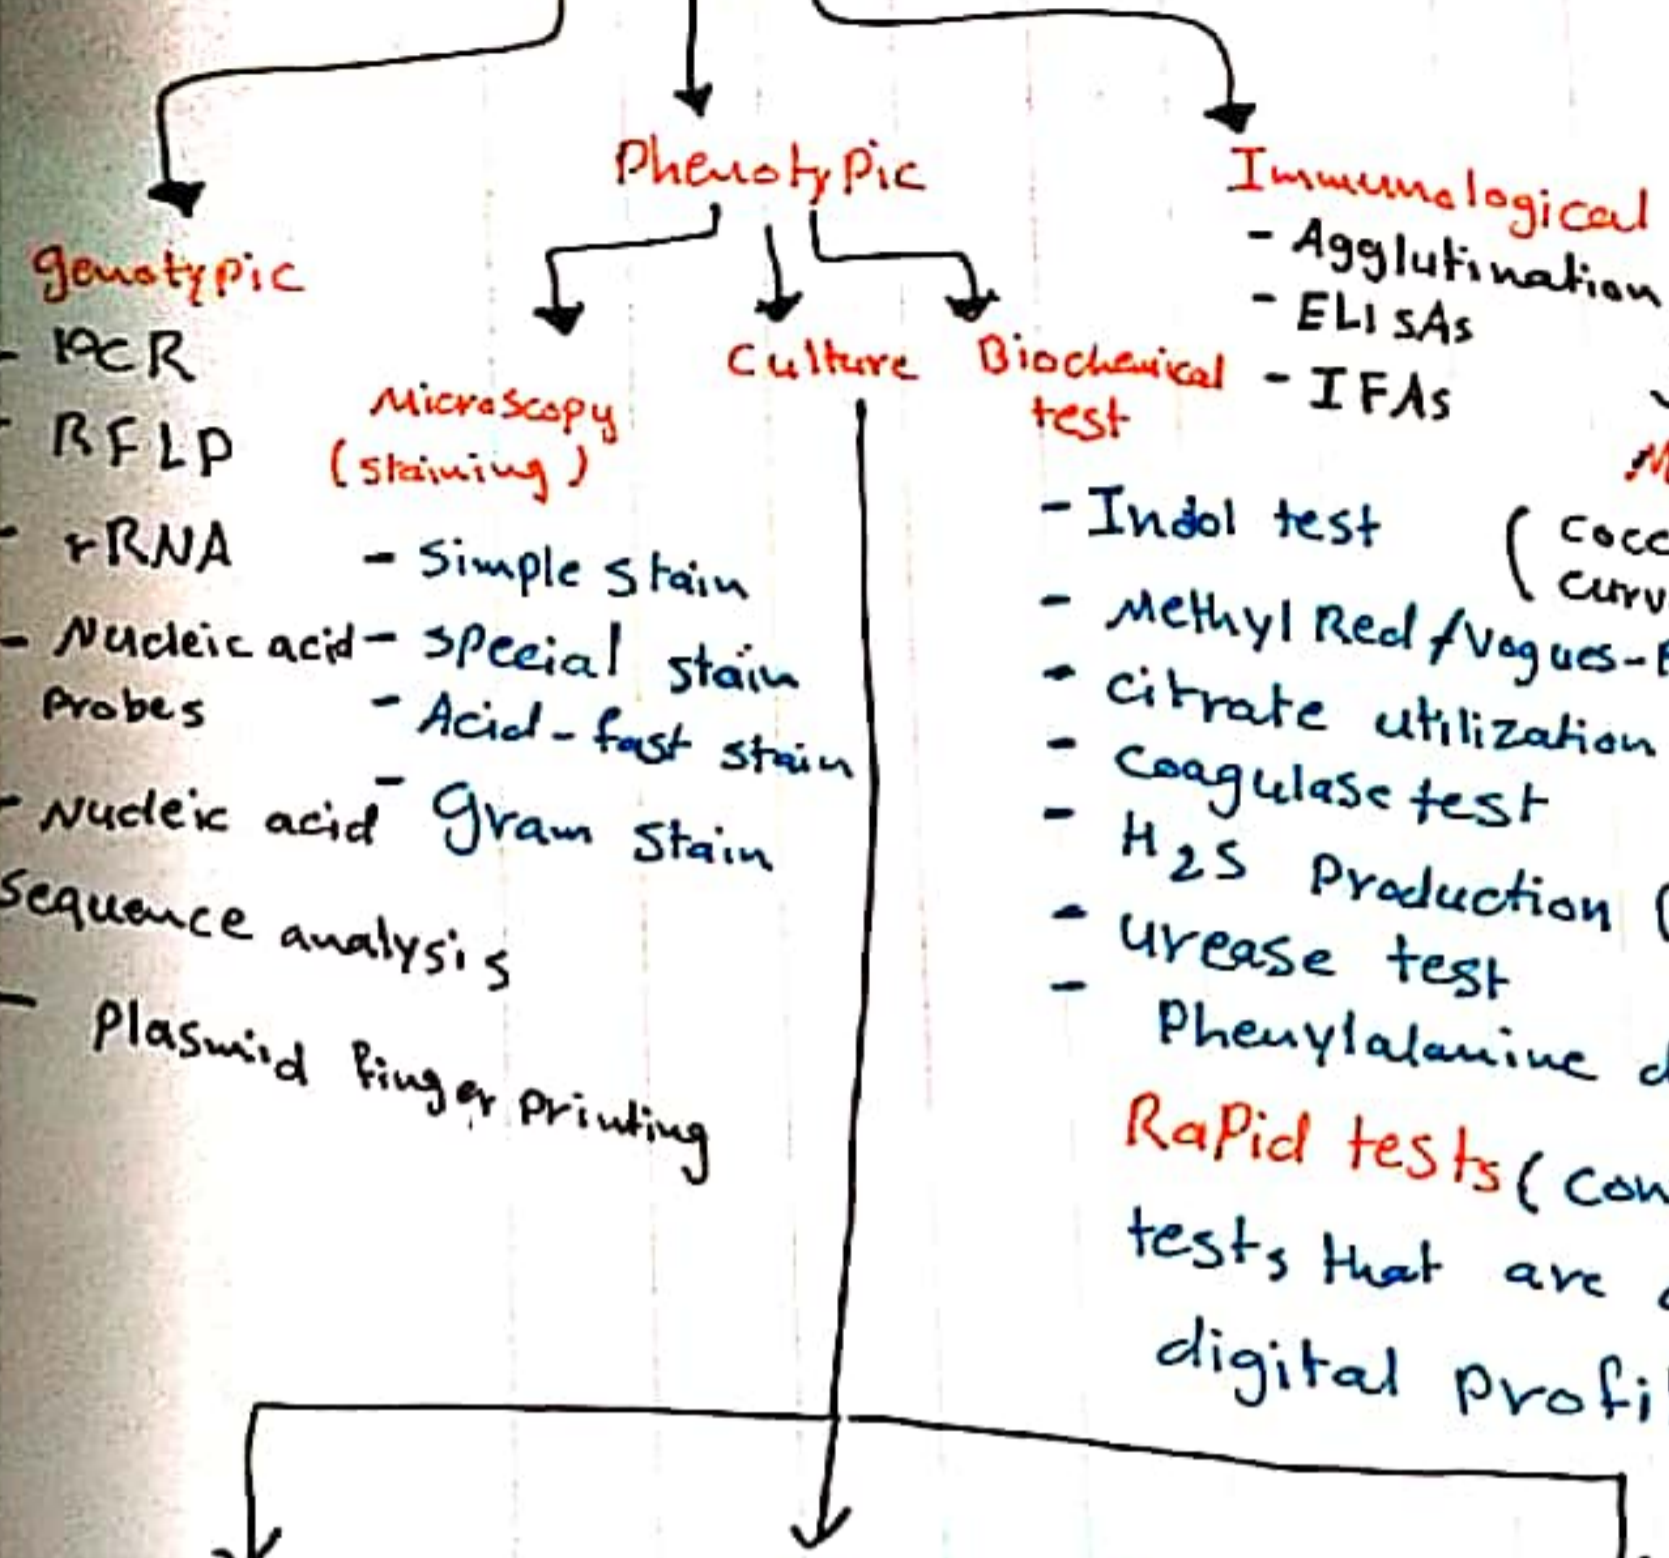 Phenotypic
Immunological
- Agglutination
- ELISAs
- IFAs
genotypic
- PCR
- RFLP
- rRNA
- Nucleic acid
Probes
- Nucleic acid
Sequence analysis
- Plasmid finger printing
Microscopy
(staining)
- Simple stain
- special stain
- Acid-fast stain
- Gram stain
Culture
Biochemical
test
- Indol test
- Methyl Red / Vogues-
- citrate utilization
- Coagulase test
- H2S Production (
- urease test
- Phenylalanine d
Rapid tests (
tests that are
digital profi
M
( cocc
curv